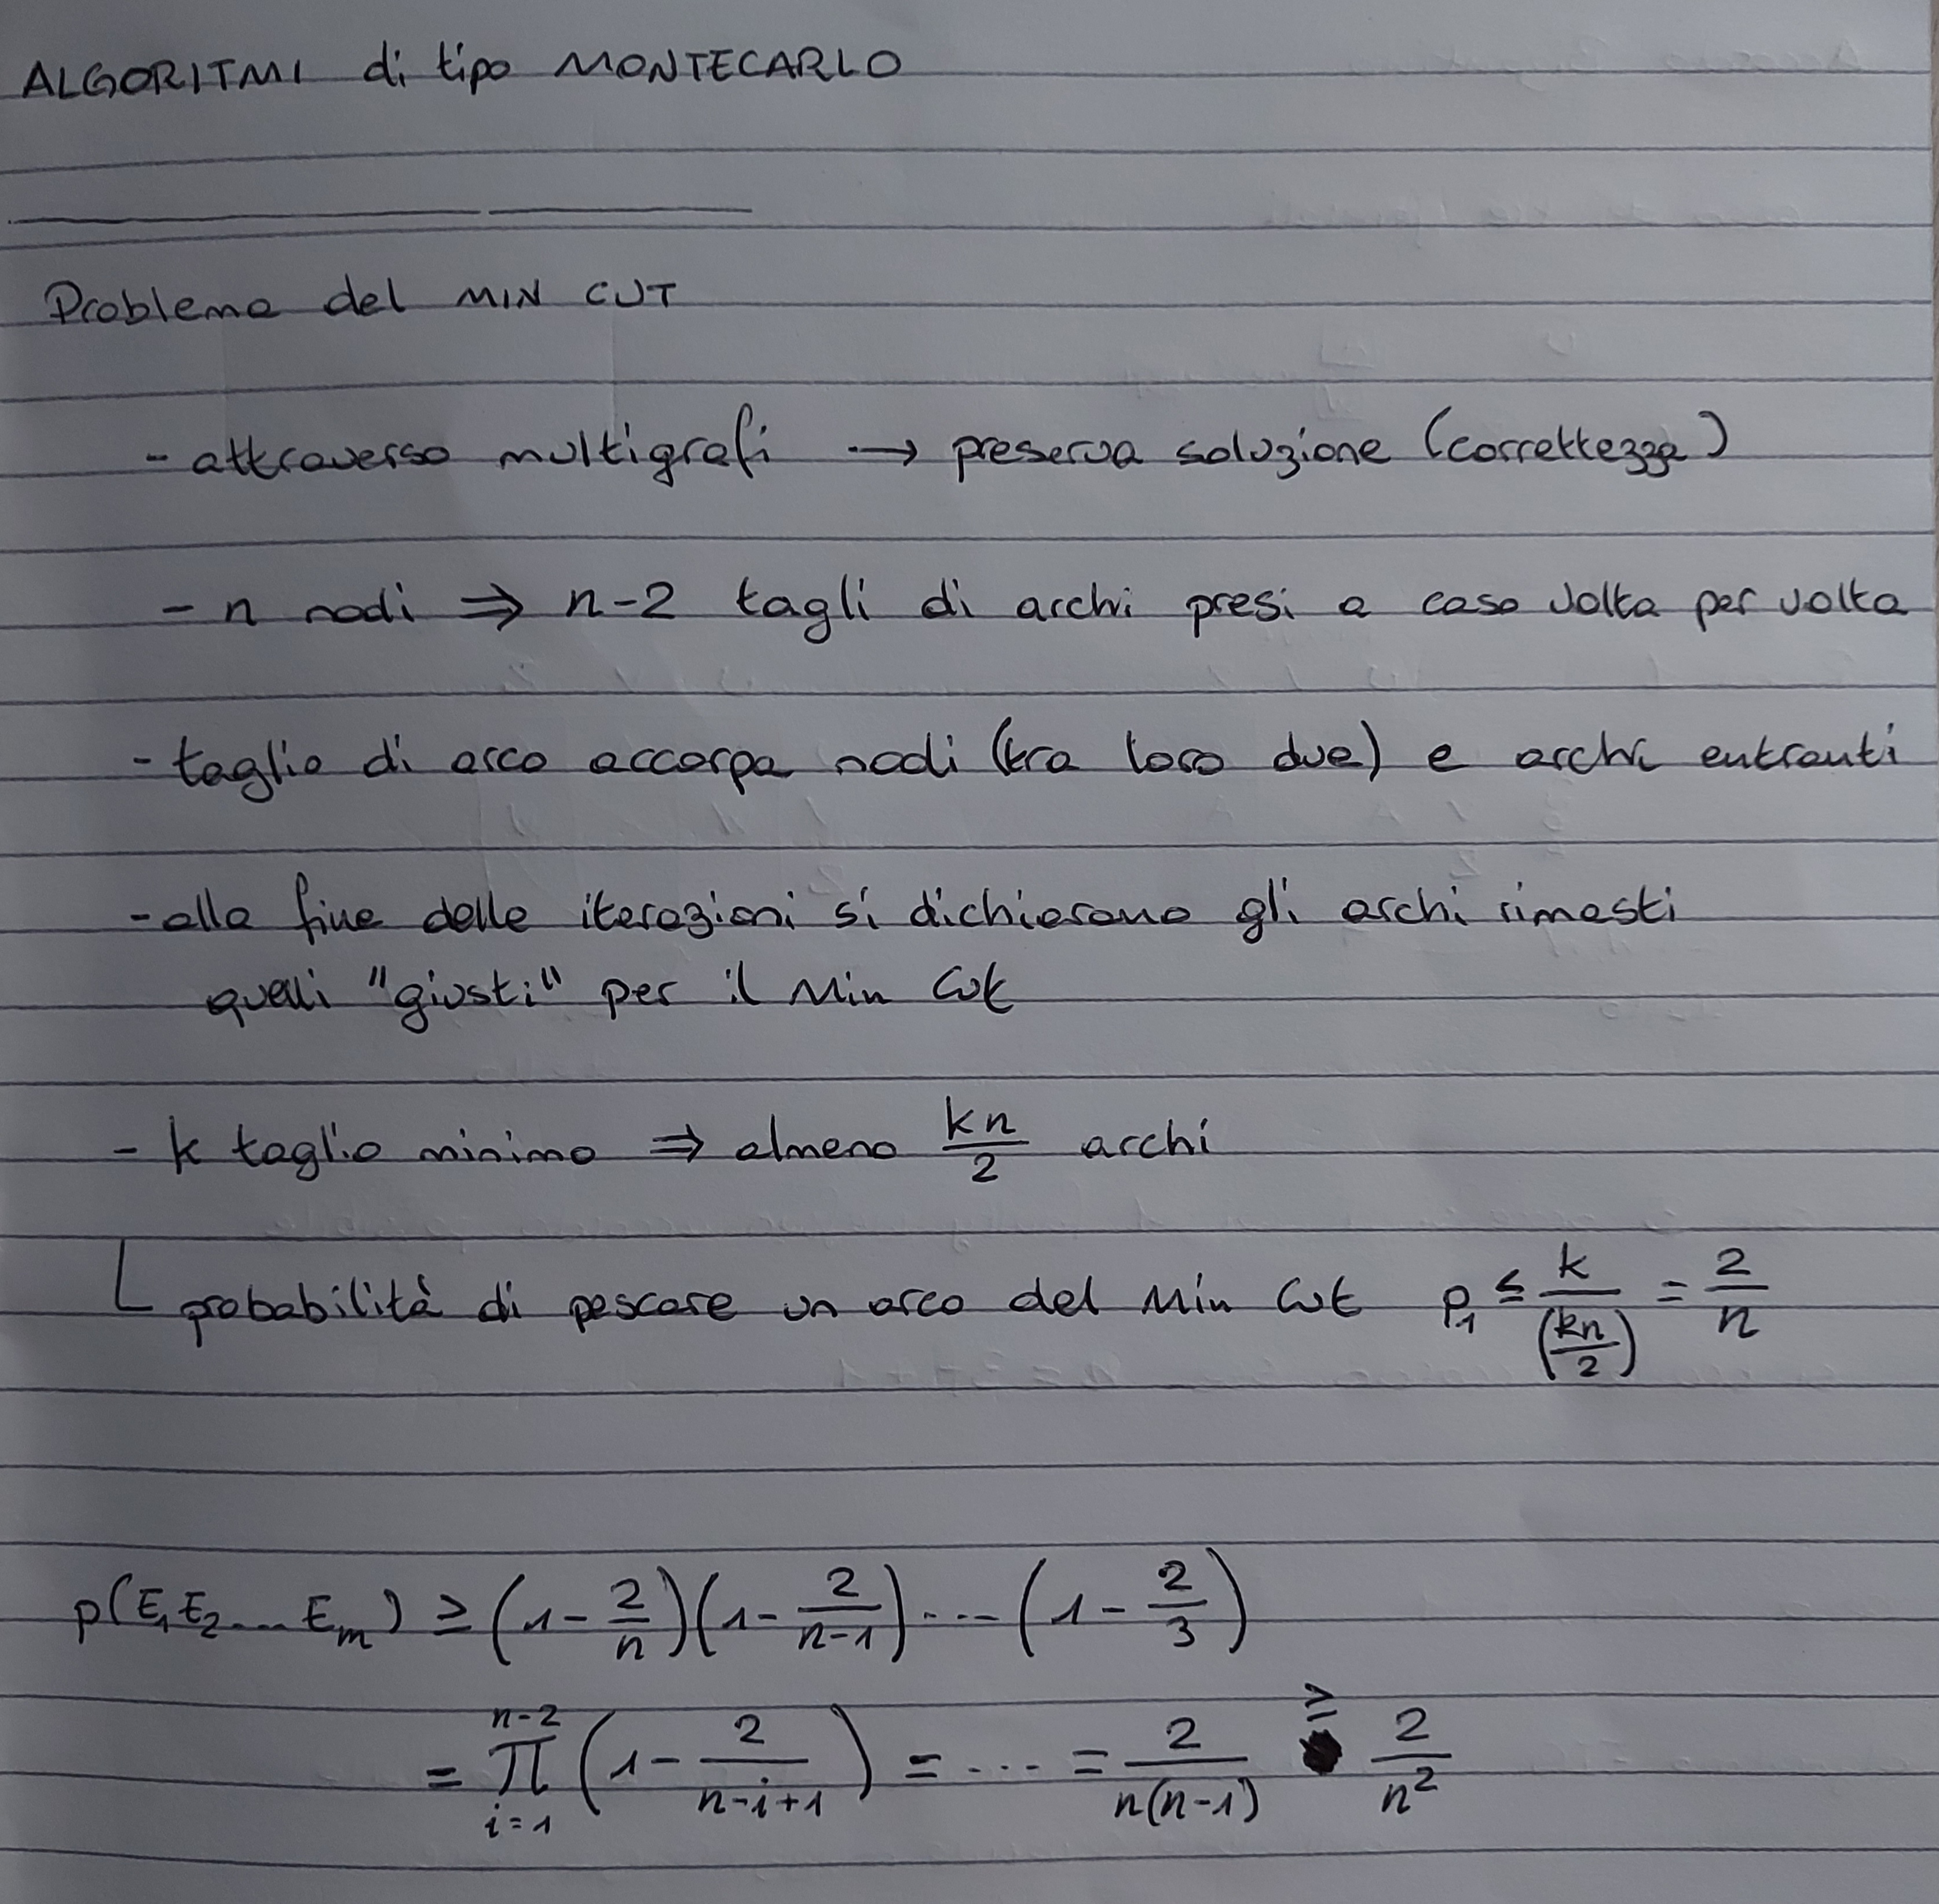 ALGORITMI di tipo MONTECARLO
Problema del MIN CUT
- attraverso multigrafi → preserva soluzione (correttezza)
- n nodi ⇒ n-2 tagli di archi presi a caso volta per volta
- taglio di arco accorpa nodi (tra loro due) e archi entranti
- alla fine delle iterazioni si dichiarano gli archi rimasti
quelli "giusti" per il Min Cut
- k taglio minimo ⇒ almeno kn/2 archi
└ probabilità di pescare un arco del Min Cut p₁ ≤ k/(kn/2) = 2/n
p(E₁E₂...Eₘ) ≥ (1 - 2/n)(1 - 2/(n-1)) ... (1 - 2/3)
= ∏_{i=1}^{n-2} (1 - 2/(n-i+1)) = ... = 2/(n(n-1)) ≥ 2/n²